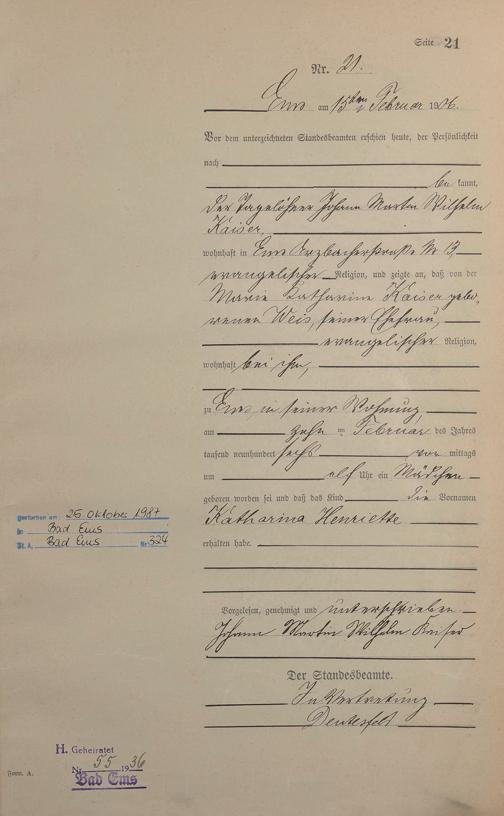 Seite 21
Nr. 21.
Ems am 15ten Februar 1906.
Vor dem unterzeichneten Standesbeamten erschien heute, der Persönlichkeit
nach
be kannt,
der Tagelöhner Johann Martin Wilhelm
Kaiser,
wohnhaft in Ems Arzbacherstraße Nr 13,
evangelischer Religion, und zeigte an, daß von der
Marie Katharine Kaiser gebo-
renen Weis, seiner Ehefrau,
evangelischer Religion,
wohnhaft bei ihm,
zu Ems in seiner Wohnung,
am zehn ten Februar des Jahres
tausend neunhundert sechs vor mittags
um elf Uhr ein Mädchen
geboren worden sei und daß das Kind die Vornamen
Katharina Henriette
erhalten habe.
gestorben am: 26. Oktober 1987
in Bad Ems
St. A. Bad Ems Nr. 324
Vorgelesen, genehmigt und unterschrieben
Johann Martin Wilhelm Keiser
Der Standesbeamte.
In Vertretung
H. Geheiratet
Nr. 55 1936
Bad Ems
Form. A.